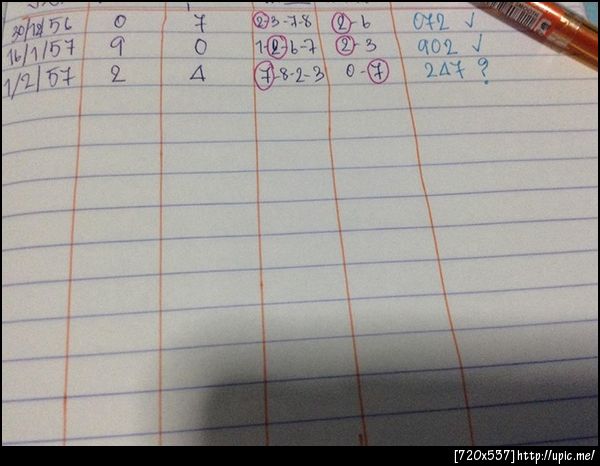 30/12/56 0 7 2-3-7-8 2-6 072 ✓
16/1/57 9 0 1-2-6-7 2-3 902 ✓
1/2/57 2 4 7-8-2-3 0-7 247 ?
[720x537]http://upic.me/